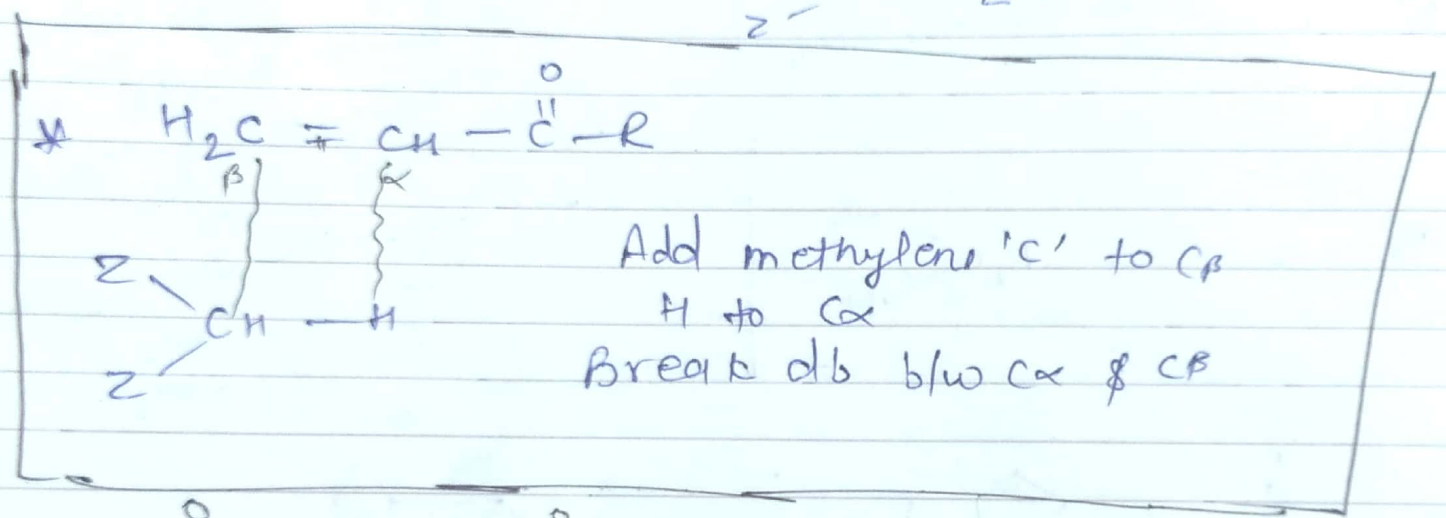 z
O
* H₂C = CH — C — R
β α
Z
CH — H
Z
Add methylene 'C' to Cβ
H to Cα
Break db b/w Cα & Cβ
O O